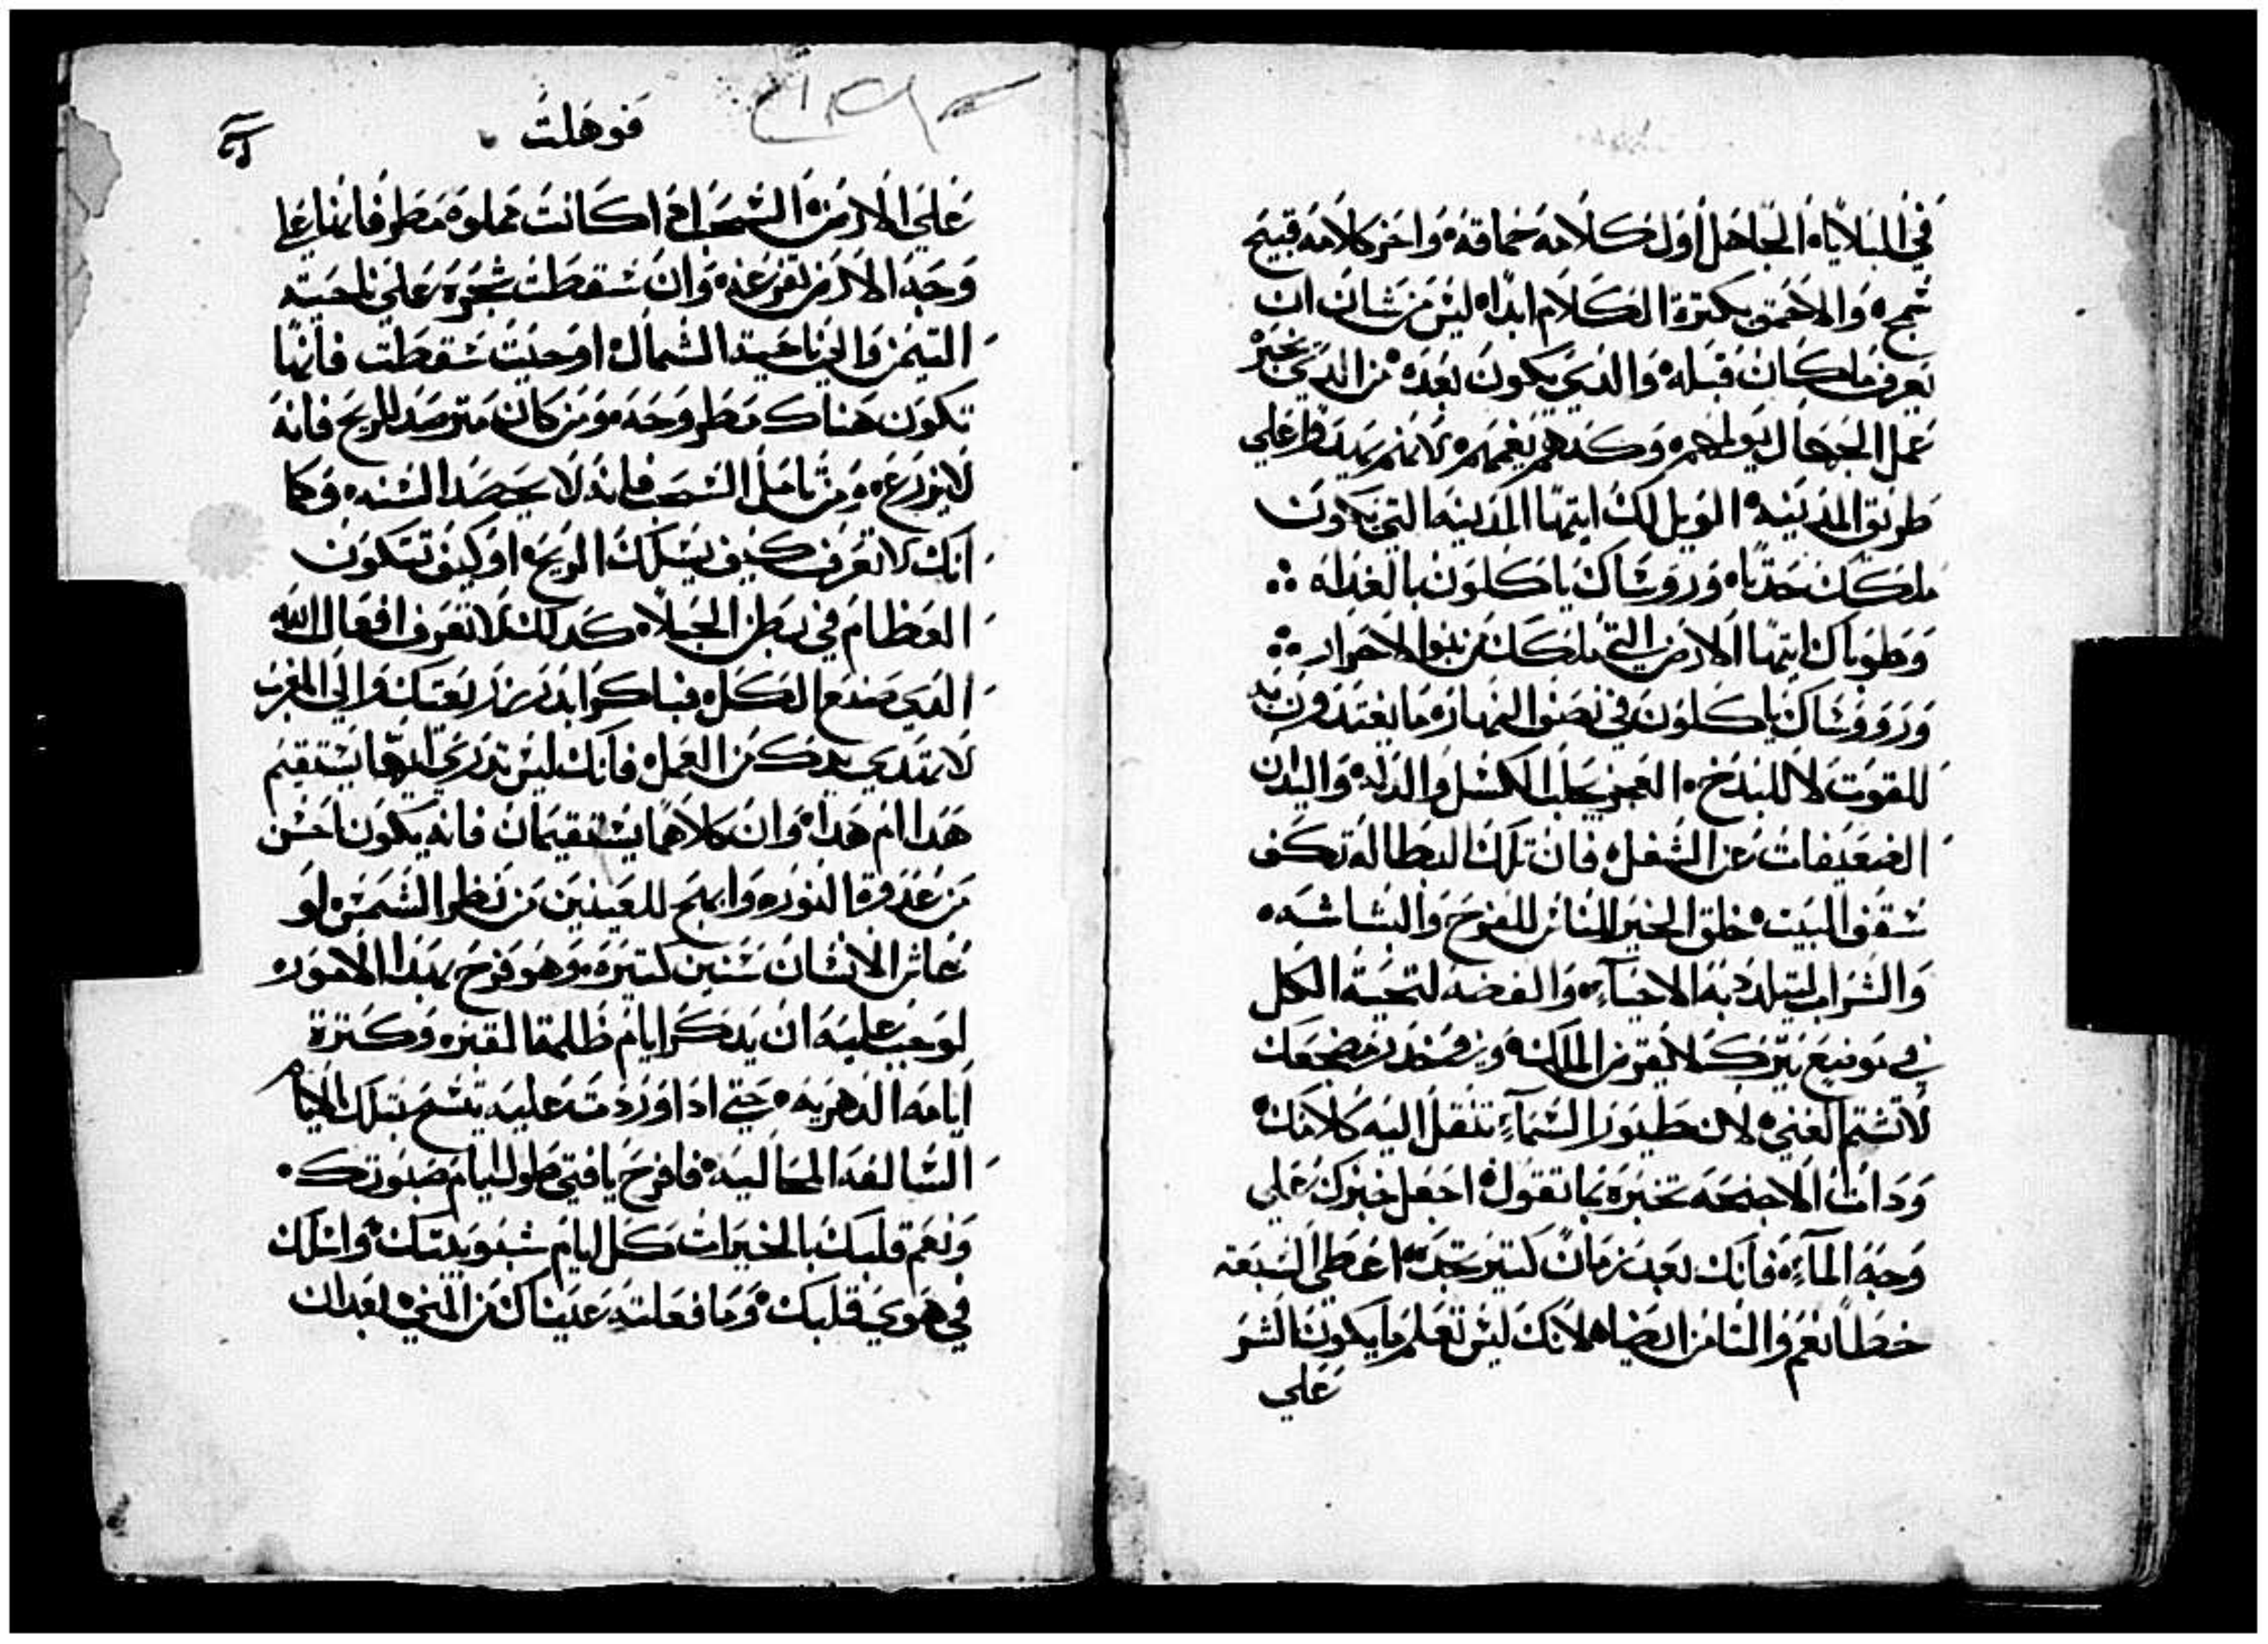 في البلايا، الجاهل اول كلامه حماقه، واخر كلامه قبيح
سمج، والاحمق يكترة الكلام ابدا، ليس من شان ان
يعرف ما كان قبله، والدي يكون بعده، من الدي يخبر
عمل الجهال يولمهم وكدهم يغمهم، لانهم
طريق المدينه، الويل لك ايتها المدينه التي تكون
ملكك حدثا، وروساك ياكلون بالغداه ჻
وطوباك ايتها الارض التي ملكك من بنوا الاحرار ჻
وروساك ياكلون في نصف النهار، ما يغتدون به
للقوت لا للبدخ، العجز يجلب الكسل والدله، واليدان
الضعيفات عن الشغل، فان تلك البطاله تكف
سقف البيت، خلق الخبز للناس للفرح والبشاشه،
والشراب ليتلدد به الاحيآء، والفضه لتحية الكل
لا تشتم الغني، لان طيور السمآء تنقل اليه كلامك،
ودات الاجنحه تخبره بما تقول، اجعل خبزك علي
وجه المآء، فانك بعد زمان كتير تجده، اعطي السبعه
خطا نعم والتامن ايضا، لانك ليس تعلم ما يكون الشر
علي
قوهلت
علي الارض، السحب ادا كانت مملوه مطر فانها علي
وجه الارض تفرغه، وان سقطت شجره علي ناحية
التيمن والي ناحية الشمال، او حيت سقطت فانها
تكون هناك مطروحه، ومن كان مترصد الريح فانه
لا يزرع، ومن تامل السحب فانه لا يحصد السنه، وكما
انك لا تعرف كيف يسلك الريح، او كيف تتكون
العظام في بطن الحبلا، كدلك لا تعرف افعال الله
الدي صنع الكل، فباكرا ابدر زريعتك والي المغرب
لا تهدي يدك من العمل، فانك ليس تدري ايها يستقيم
هدا ام هدا، وان كلاهما يستقيمان فانه يكون احسن
من عدوة النور، وابهج للعينين من نظر الشمس، لو
عاش الانسان سنين كتيره، وهو فرح بهدا الامور،
لوجب عليه ان يدكر ايام ظلمة القبر، وكترة
ايامه الدهريه، حتي ادا وردت عليه يتسم بتلك الايام
السالفه الخاليه، فافرح يا فتي طول ايام صبوتك،
ونعم قلبك بالخيرات كل ايام شبوبيتك، واسلك
في هوي قلبك، وما فعلته عيناك من المني، بعد ان